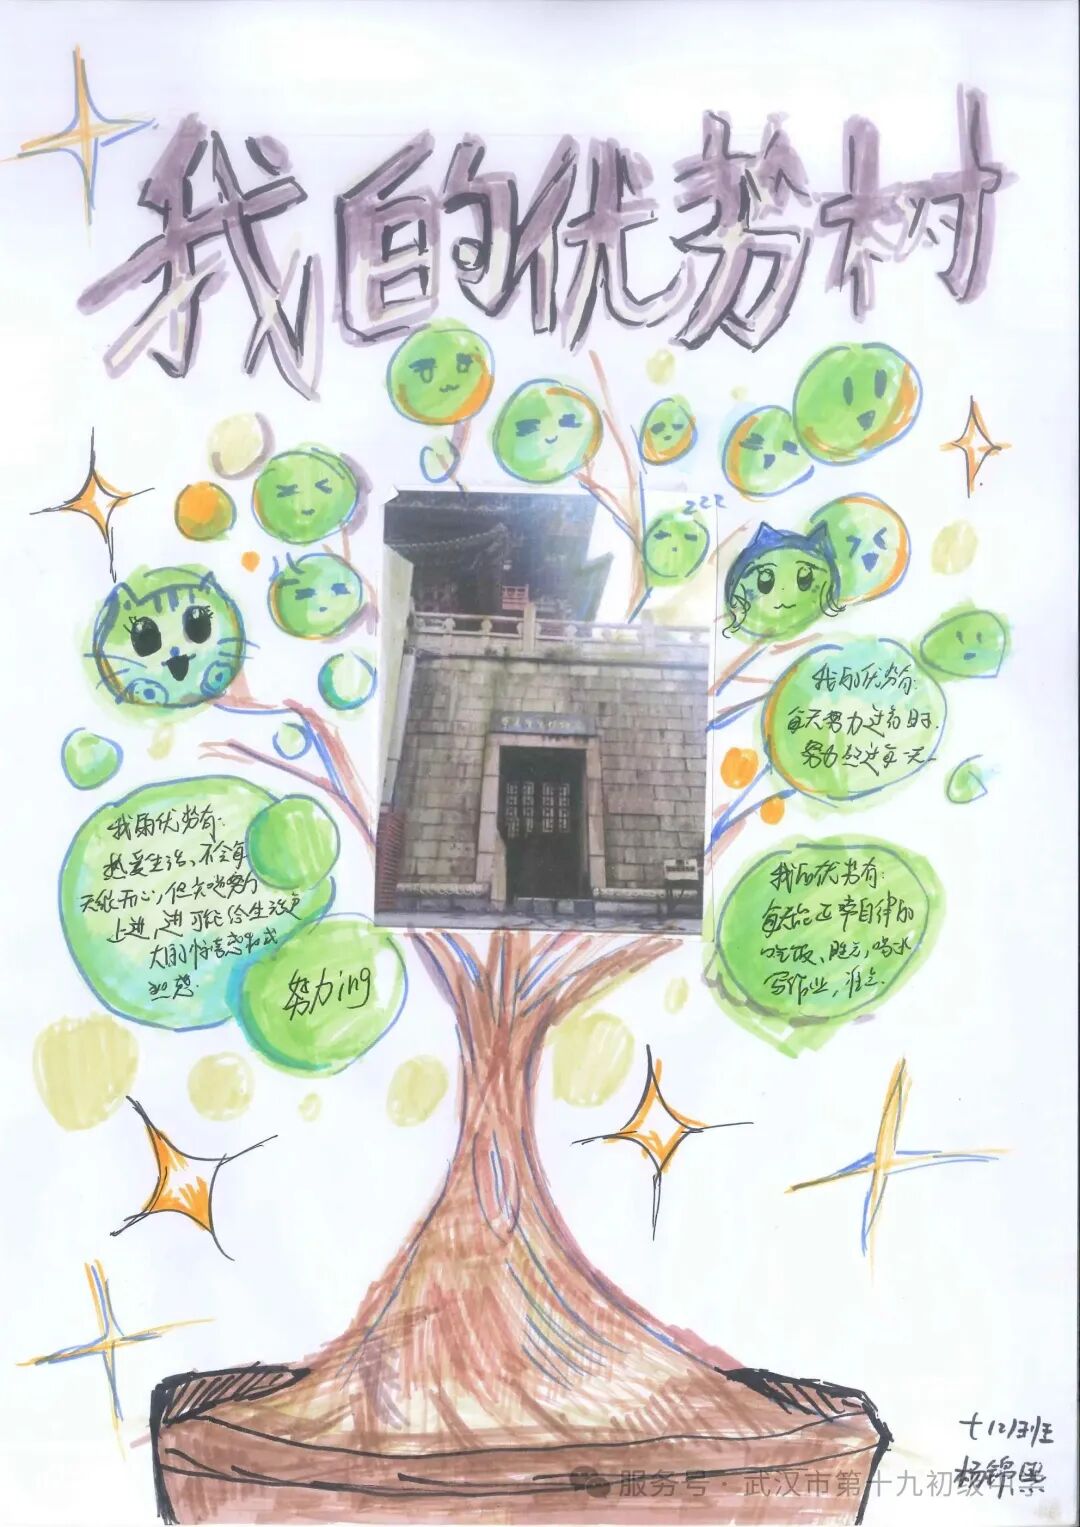 我的优势树
zzz
我的优势有:
每天努力过好每时.
努力经过每一天.
我的优势有:
热爱生活、不会每
天都开心,但
上进,进可能给生活更
大的惊喜感和
努力ing
我的优势有:
每天能正常自律的
吃饭、睡觉,喝水
写作业,准点.
七(2)班
杨锦
服务号 · 武汉市第十九初级中学